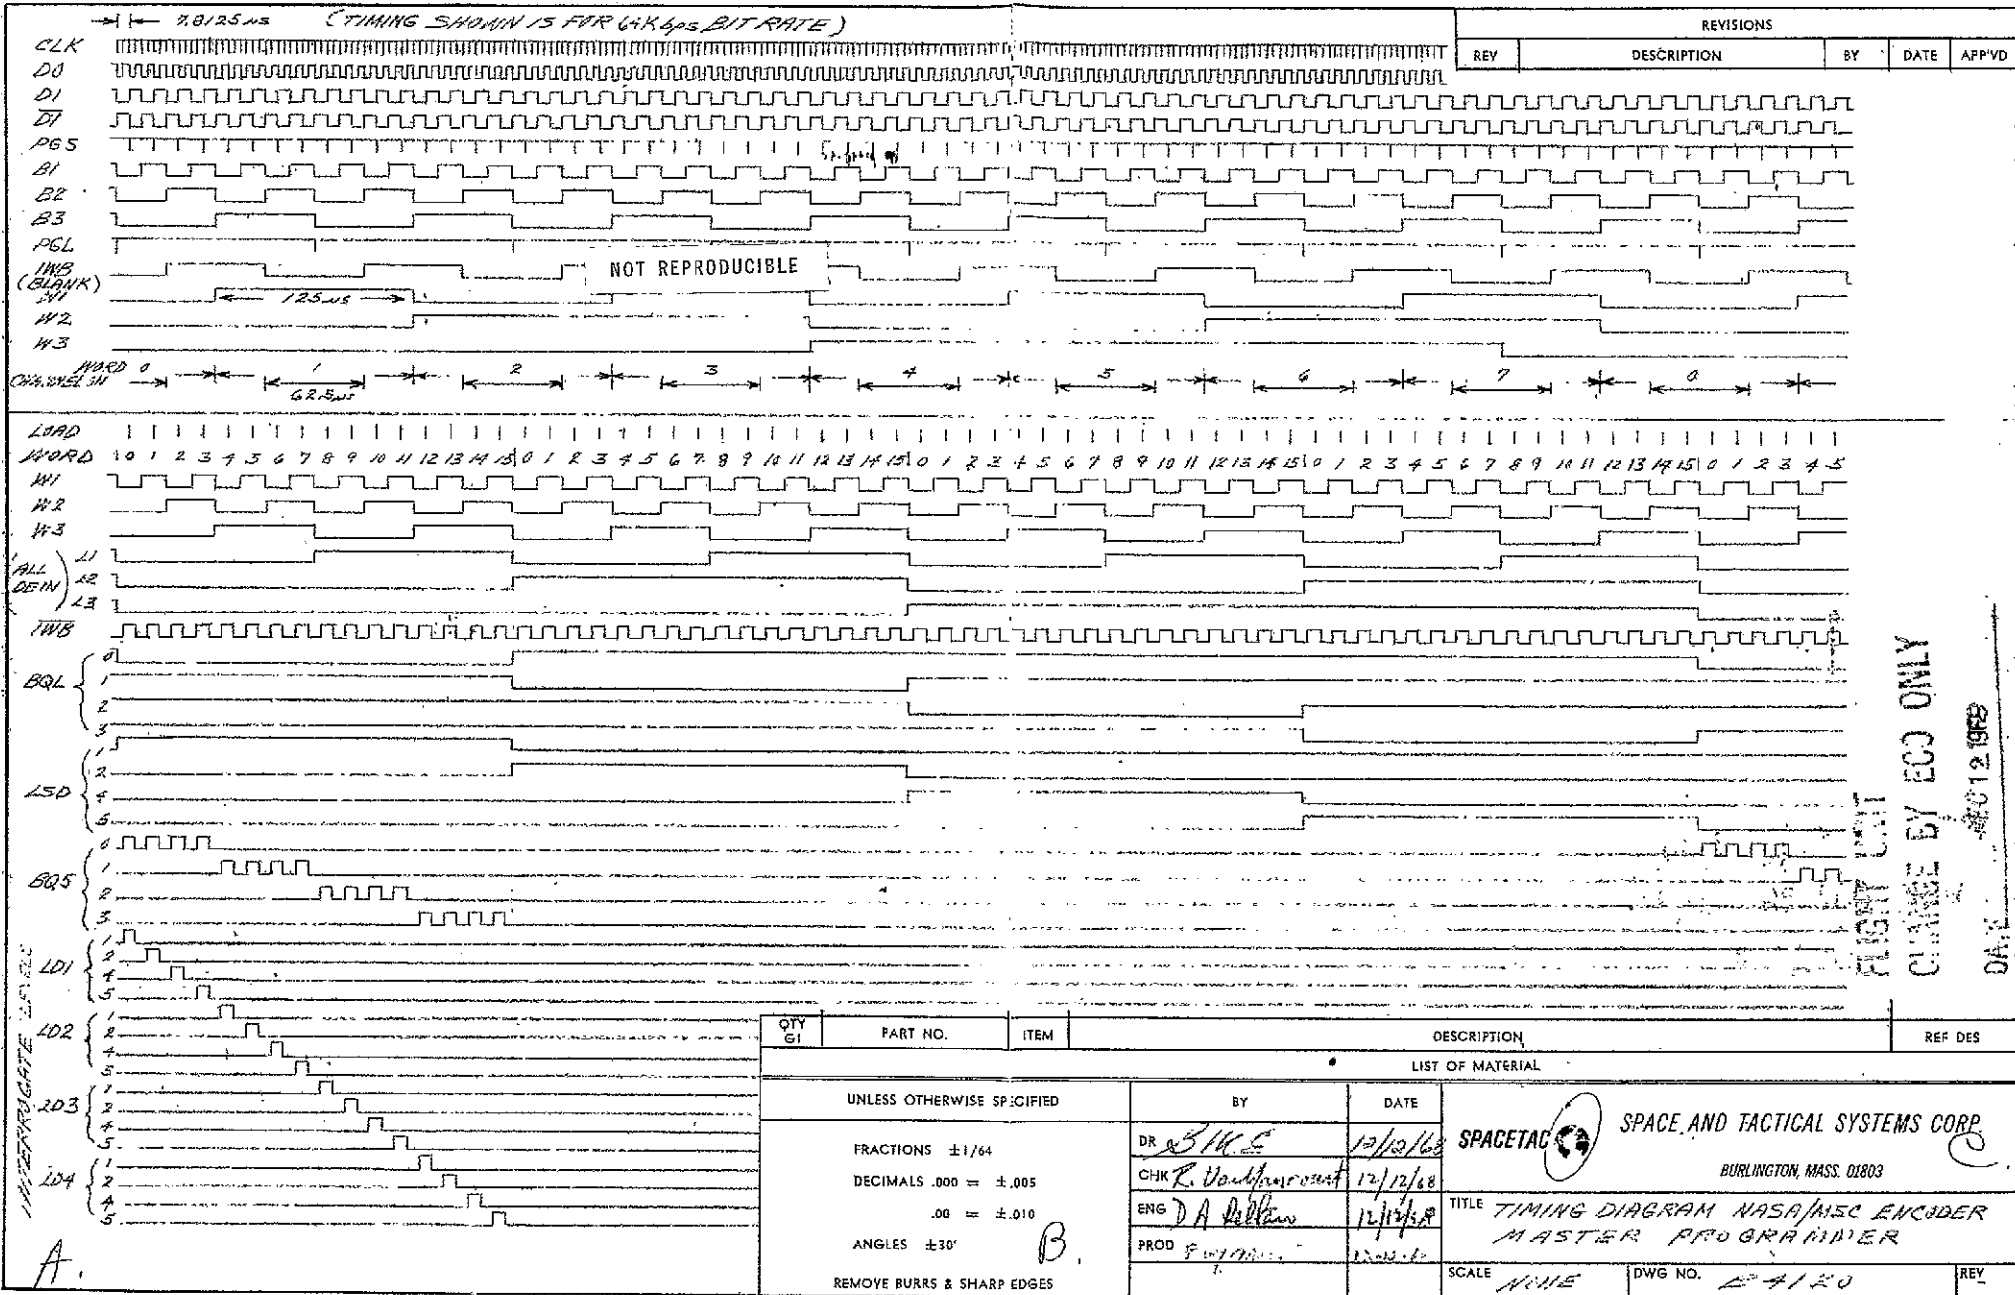 7.8125 µs (TIMING SHOWN IS FOR 64Kbps BIT RATE)
REVISIONS
REV DESCRIPTION BY DATE APP'VD
CLK
D0
D1
D1
PGS
B1
B2
B3
PGL
IWB
(BLANK)
NOT REPRODUCIBLE
W1
125 µs
W2
W3
WORD 0 1 2 3 4 5 6 7 0
62.5 µs
LOAD
WORD 0 1 2 3 4 5 6 7 8 9 10 11 12 13 14 15 0 1 2 3 4 5 6 7 8 9 10 11 12 13 14 15 0 1 2 3 4 5 6 7 8 9 10 11 12 13 14 15 0 1 2 3 4 5 6 7 8 9 10 11 12 13 14 15 0 1 2 3 4 5
W1
W2
W3
ALL L1
DEIN L2
L3
IWB
BQL 0
1
2
3
LSD 1
2
4
5
BQS 0
1
2
3
INTERROGATE LEVELS
LD1 1
2
4
5
LD2 1
2
4
5
LD3 1
2
4
5
LD4 1
2
4
5
A.
FLIGHT UNIT
CHANGE BY ECO ONLY
DEC 12 1968
QTY G1 PART NO. ITEM DESCRIPTION REF DES
LIST OF MATERIAL
UNLESS OTHERWISE SPECIFIED
FRACTIONS ±1/64
DECIMALS .000 = ±.005
.00 = ±.010
ANGLES ±30'
REMOVE BURRS & SHARP EDGES
B.
BY DATE
DR 12/12/68
CHK R. 12/12/68
ENG D A 12/12/68
PROD
SPACETAC SPACE AND TACTICAL SYSTEMS CORP.
C
BURLINGTON, MASS. 01803
TITLE TIMING DIAGRAM NASA/MSC ENCODER
MASTER PROGRAMMER
SCALE NONE DWG NO. REV